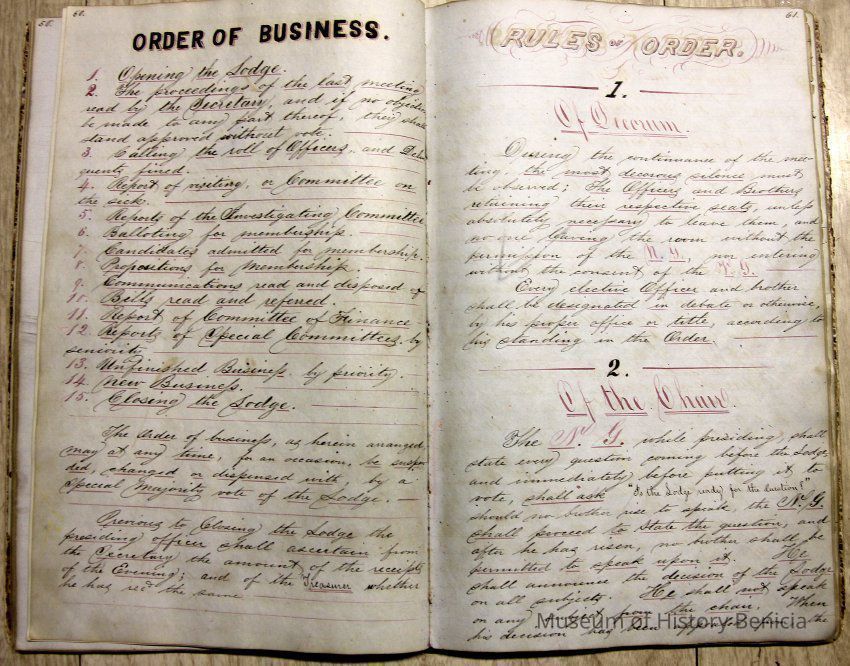 58.
60.
ORDER OF BUSINESS.
1. Opening the Lodge.
2. The proceedings of the last meeting
read by the Secretary, and if no objection
be made to any part thereof, they shall
stand approved without vote.
3. Calling the roll of Officers, and Delin
quents fined.
4. Report of visiting, or Committee on
the sick.
5. Reports of the Investigating Committee
6. Balloting for membership.
7. Candidates admitted for membership.
8. Propositions for Membership.
9. Communications read and disposed of
10. Bills read and referred.
11. Report of Committee of Finance
12. Reports of Special Committees, by
seniority.
13. Unfinished Business, by priority.
14. New Business.
15. Closing the Lodge.
The Order of business, as herein arranged,
may at any time, for an occasion, be suspen
ded, changed or dispensed with, by a
Special Majority vote of the Lodge.
Previous to Closing the Lodge the
presiding officer shall ascertain from
the Secretary the amount of the receipts
of the Evening; and of the Treasurer whether
he has recd the same
61.
RULES OF ORDER.
1.
Of Decorum.
During the continuance of the mee-
ting, the most decorous silence must
be observed; The Officers and Brothers
retaining their respective seats, unless
absolutely necessary to leave them, and
no one leaving the room without the
permission of the N. G., nor entering
without the consent of the V. G.
Every elective Officer and brother
shall be designated in debate or otherwise,
by his proper office or title, according to
his standing in the Order.
2.
Of the Chair
The N. G. while presiding, shall
state every question coming before the Lodge,
and immediately before putting it to
vote, shall ask "Is the Lodge ready for the Question?"
should no brother rise to speak, the N. G.
shall proceed to State the question, and
after he has risen, no brother shall be
permitted to speak upon it. He
shall announce the decision of the Lodge
on all subjects. He shall not speak
on any subject from the chair. When
his decision has been appealed from the
Museum of History Benicia